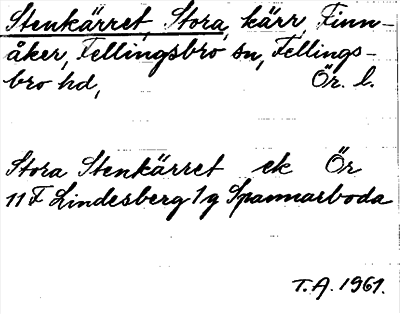 Stenkärret, Stora, kärr, Finn-
åker, Fellingsbro sn, Fellings-
bro hd, Ör. l.
Stora Stenkärret ek Ör
11 F Lindesberg 1 g Spannarboda
T.A. 1961.